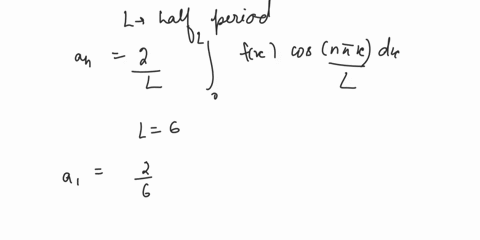 L → half period
aₙ = 2/L ∫₀ᴸ f(x) cos (nπx)/L dx
L = 6
a₁ = 2/6